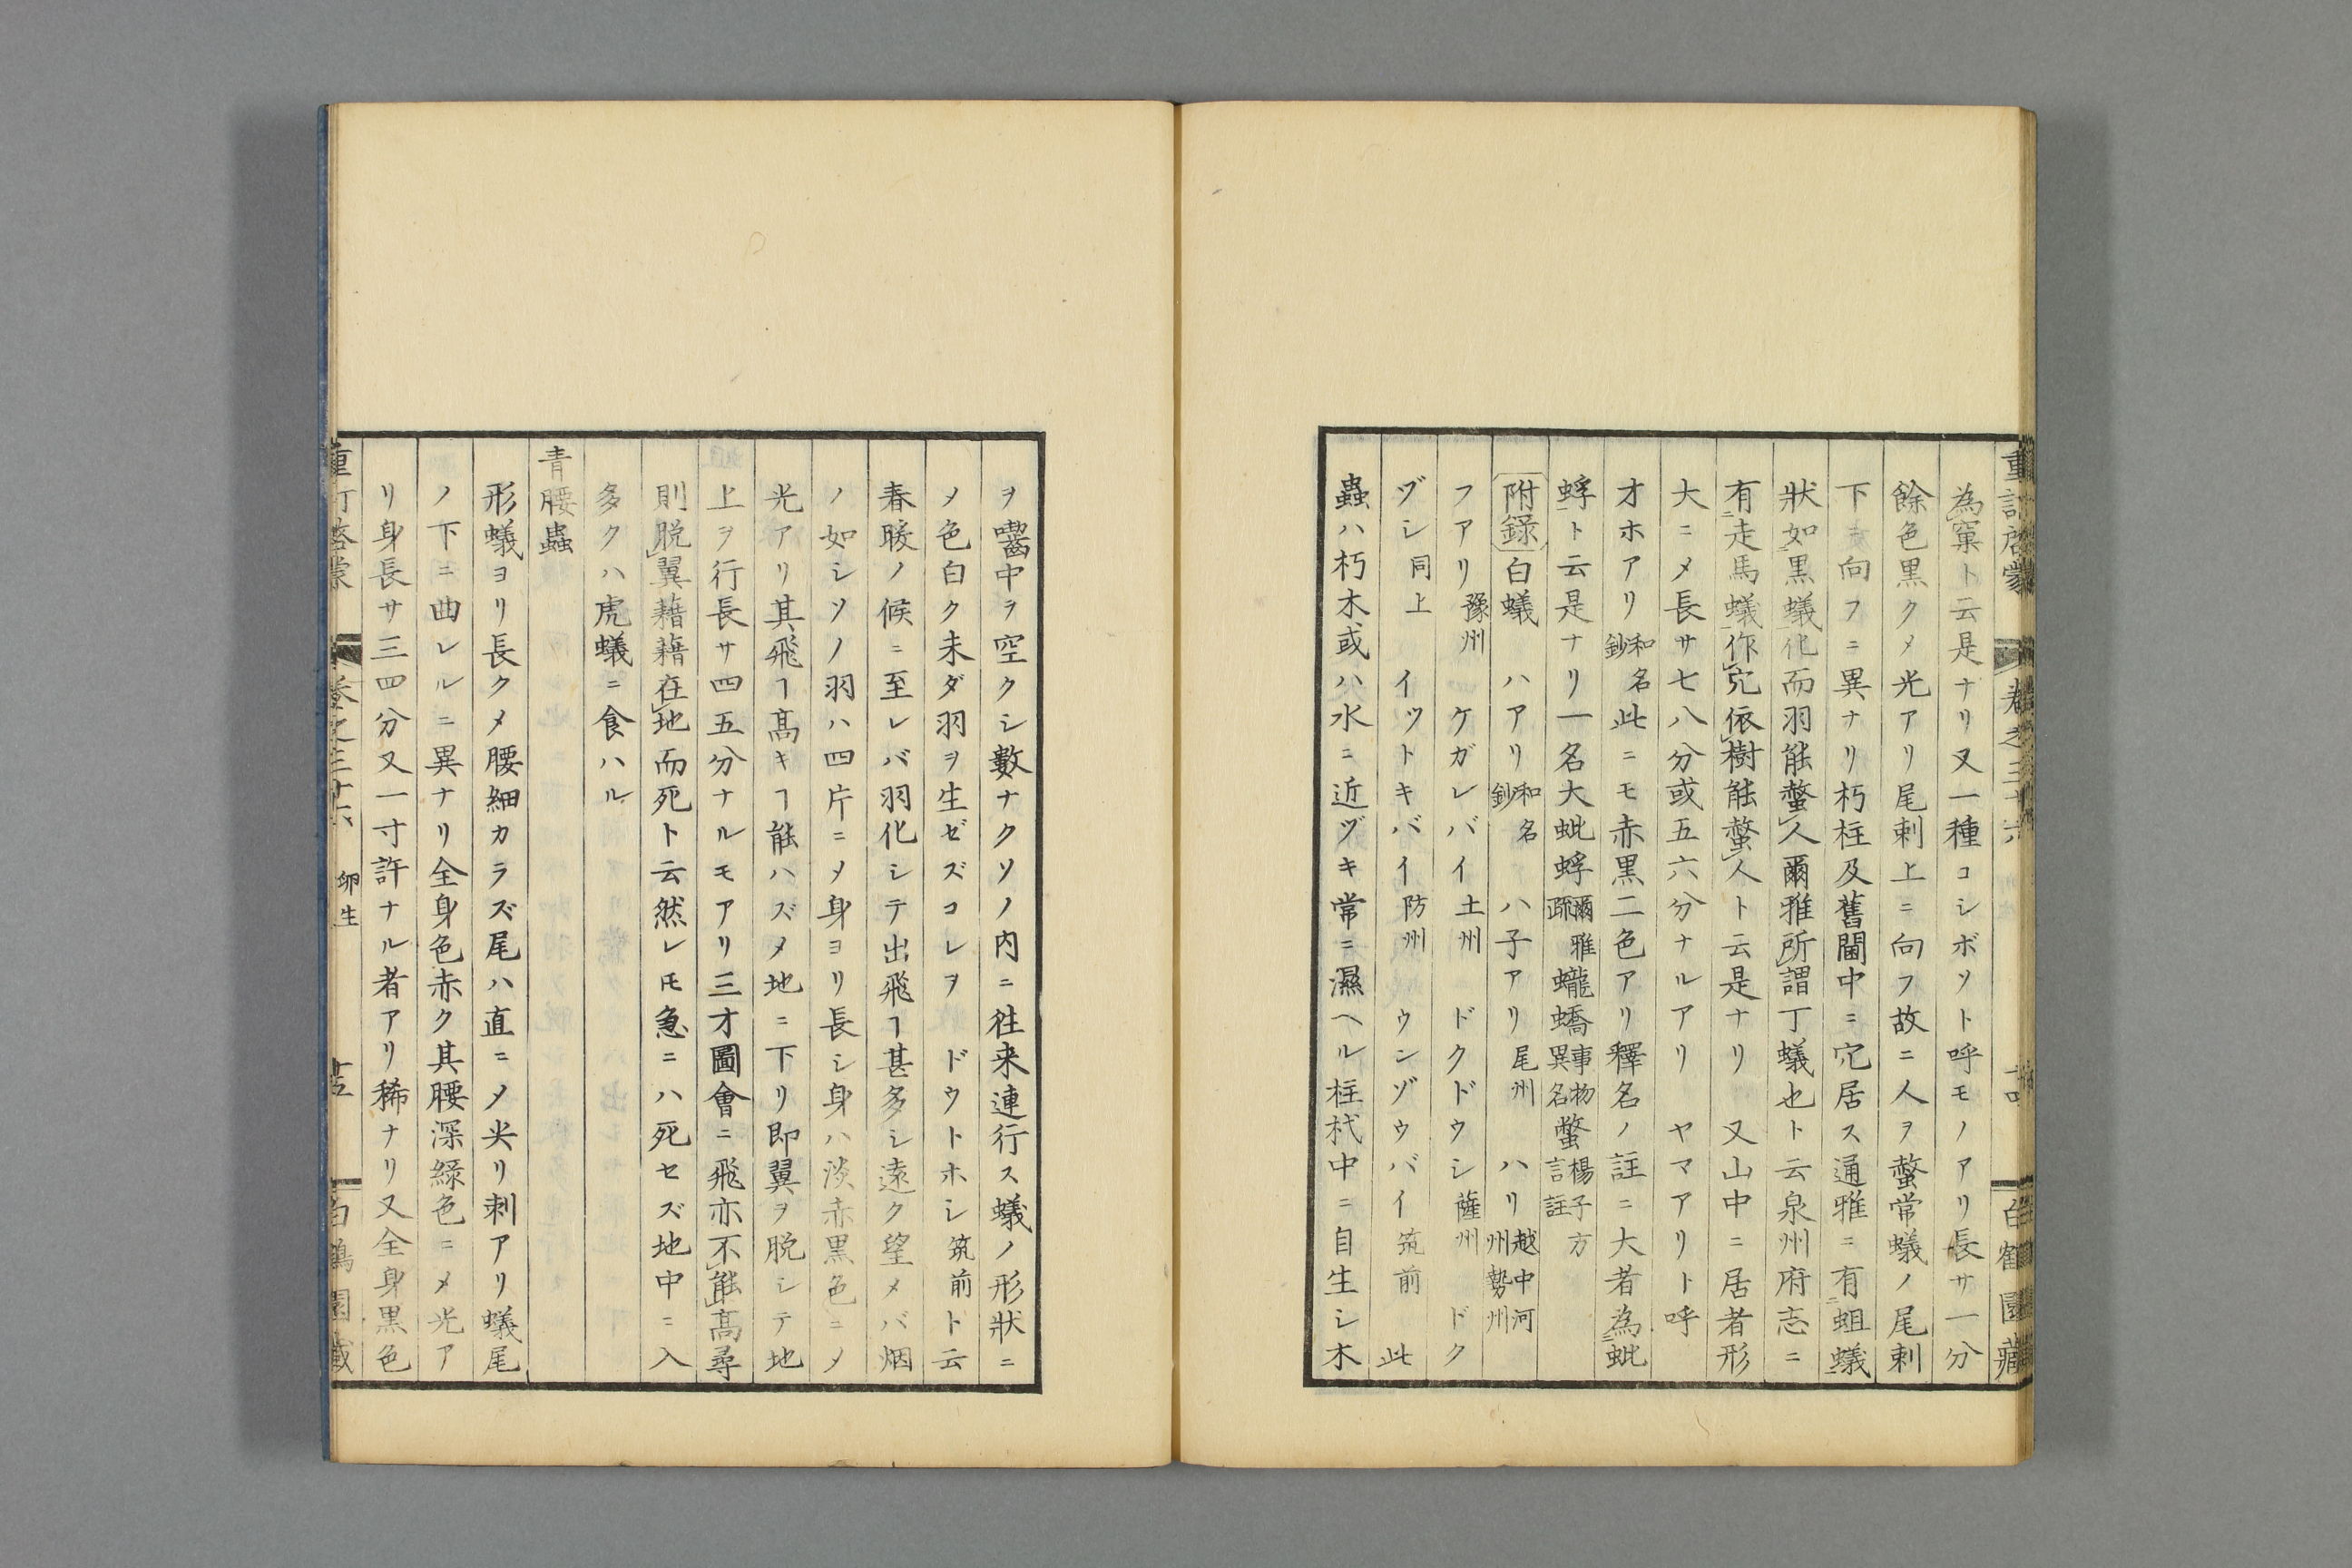 重訂啓蒙 卷之三十六 十四 白鶴園藏
為窠ト云是ナリ又一種コシボソト呼モノアリ長サ一分
餘色黒クメ光アリ尾刺上ニ向フ故ニ人ヲ螫常蟻ノ尾刺
下ニ向フニ異ナリ朽柱及舊閫中ニ穴居ス通雅ニ有蛆蟻
狀如黒蟻化而羽能螫人爾雅所謂丁蟻也ト云泉州府志ニ
有走馬蟻作穴依樹能螫人ト云是ナリ 又山中ニ居者形
大ニメ長サ七八分或五六分ナルアリ ヤマアリト呼
オホアリ和名鈔此ニモ赤黒二色アリ釋名ノ註ニ大者為蚍
蜉ト云是ナリ一名大蚍蜉爾雅疏蠪蟜事物異名螫楊子方言註
附録 白蟻 ハアリ和名鈔 ハ子アリ尾州 ハリ越中河州勢州
フアリ豫州 ケガレバイ土州 ドクドウシ薩州 ドク
ヅシ同上 イツトキバイ防州 ウンゾウバイ筑前 此
蟲ハ朽木或ハ水ニ近ヅキ常ニ濕ヘル柱杙中ニ自生シ木
ヲ囓中ヲ空クシ數ナクソノ内ニ往来連行ス蟻ノ形狀ニ
メ色白ク未ダ羽ヲ生ゼズコレヲ ドウトホシ筑前ト云
春暖ノ候ニ至レバ羽化シテ出飛ヿ甚多シ遠ク望メバ烟
ノ如シソノ羽ハ四片ニメ身ヨリ長シ身ハ淡赤黒色ニメ
光アリ其飛ヿ高キヿ能ハズメ地ニ下リ即翼ヲ脱シテ地
上ヲ行長サ四五分ナルモアリ三才圖會ニ飛亦不能高尋
則脱翼藉藉在地而死ト云然レㇳモ急ニハ死セズ地中ニ入
多クハ虎蟻ニ食ハル
青腰蟲
形蟻ヨリ長クメ腰細カラズ尾ハ直ニメ尖リ刺アリ蟻尾
ノ下ニ曲レルニ異ナリ全身色赤ク其腰深綠色ニメ光ア
リ身長サ三四分又一寸許ナル者アリ稀ナリ又全身黒色
重訂啓蒙 卷之三十六 卵生 十五 白鶴園藏